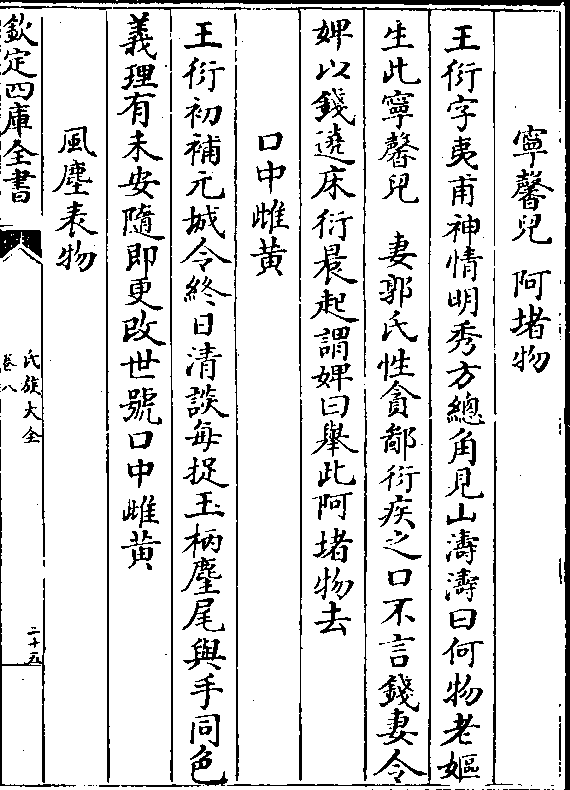 寧馨兒　阿堵物
王衍字夷甫神情明秀方總角見山濤濤曰何物老嫗
生此寧馨兒　妻郭氏性貪鄙衍疾之口不言錢妻令
婢以錢遶床衍晨起謂婢曰舉此阿堵物去
口中雌黃
王衍初補元城令終日清談每捉玉柄麈尾與手同色
義理有未安隨即更改世號口中雌黃
風塵表物
欽定四庫全書
氏族大全
卷八
二十五